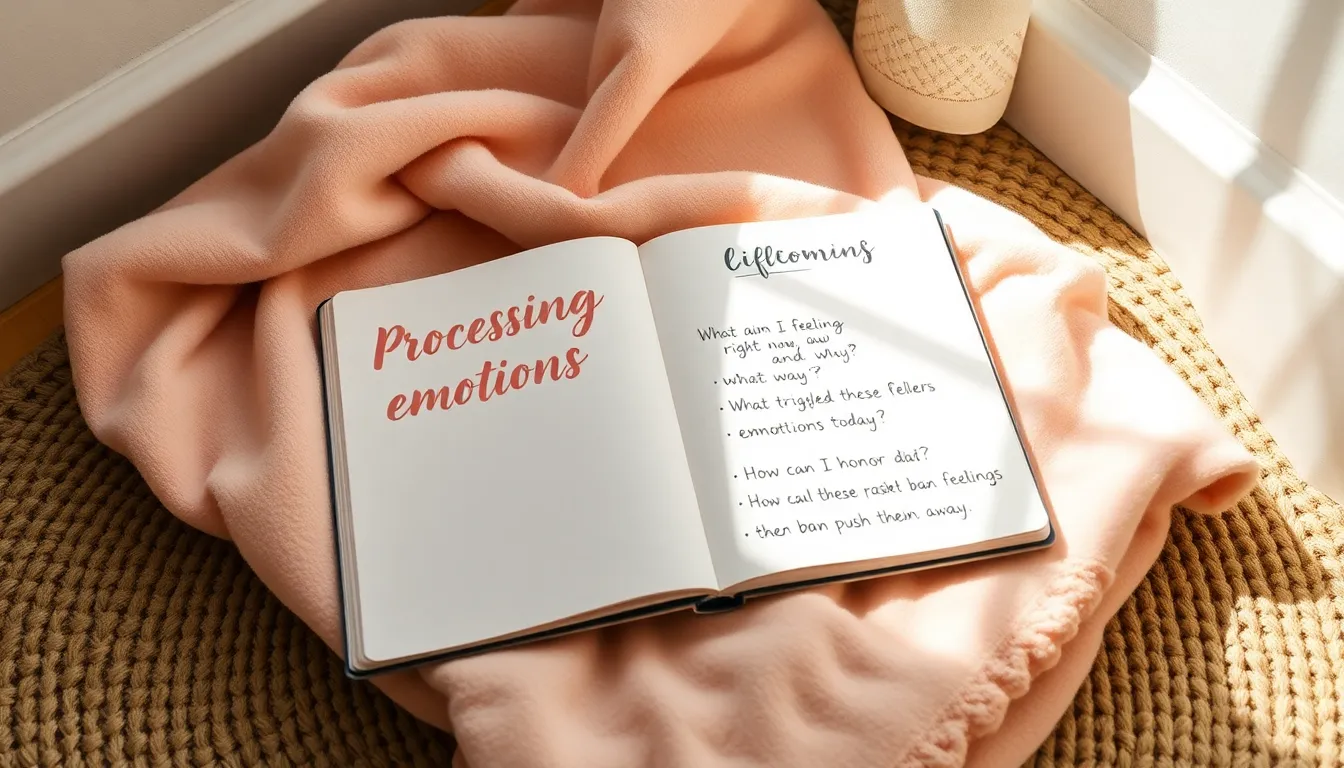 Processing
emotions
Lifleomins
What aim I feeling
right now, aw
and why?
· what way?
· What trigled these fellers
· emnottions today?
· How can I honor dait?
· How cail these raskt ban feelings
· then ban push them away.